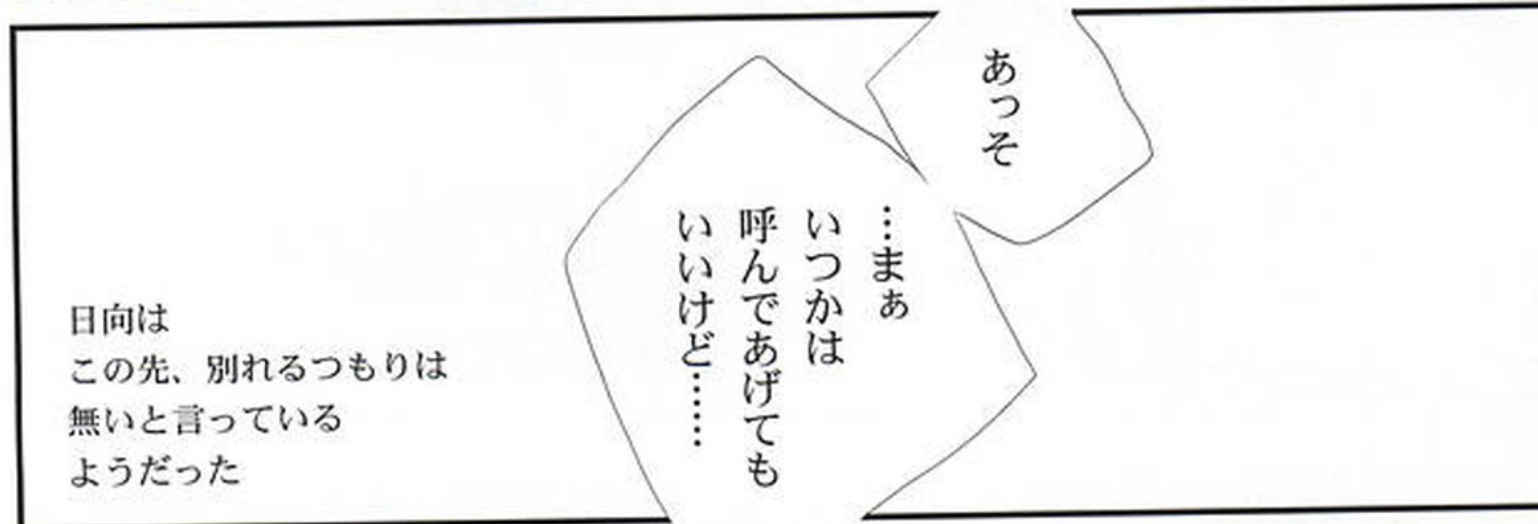 あっそ
…まぁ
いつかは
呼んであげても
いいけど……
日向は
この先、別れるつもりは
無いと言っている
ようだった